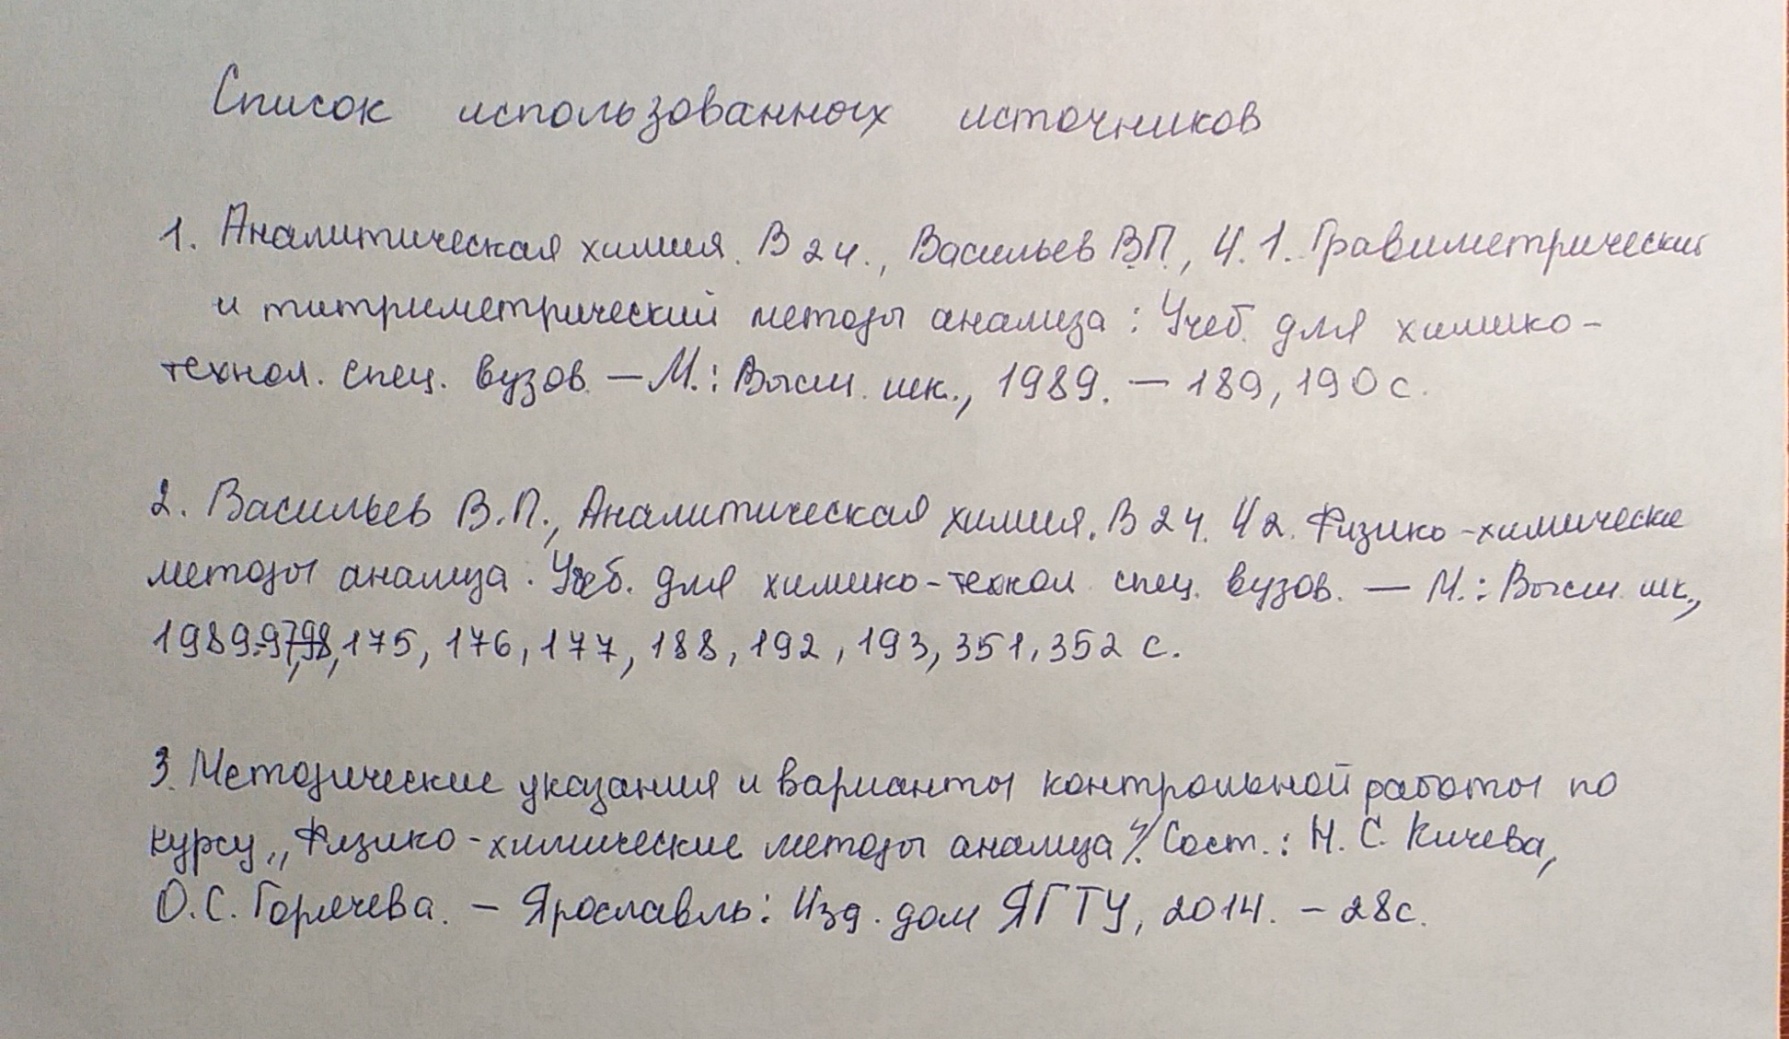 Список использованных источников
1. Аналитическая химия. В 2 ч., Васильев В.П., Ч. 1. Гравиметрический
и титриметрический методы анализа : Учеб. для химико-
технол. спец. вузов. — М.: Высш. шк., 1989. — 189, 190 с.
2. Васильев В.П., Аналитическая химия. В 2 ч. Ч 2. Физико-химические
методы анализа : Учеб. для химико-технол спец. вузов. — М.: Высш. шк.,
1989.-97,98,175, 176, 177, 188, 192, 193, 351, 352 с.
3. Методические указания и варианты контрольной работы по
курсу „Физико-химические методы анализа"/ Сост.: Н. С. Кичева,
О.С. Горячева. – Ярославль: Изд. дом ЯГТУ, 2014. – 28с.